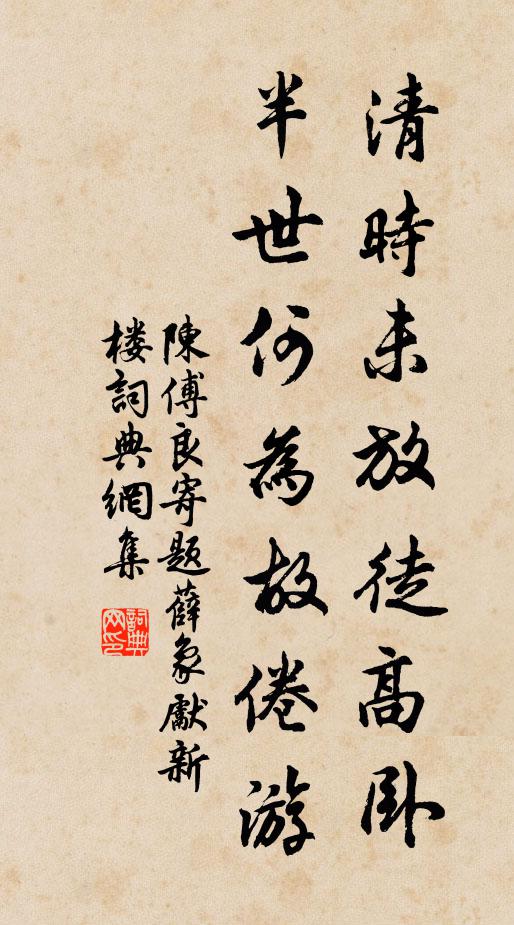 清時未放徒高卧
半世何為故倦游
陳傅良寄題薛象獻新
楼詞典網集
詞典
网印